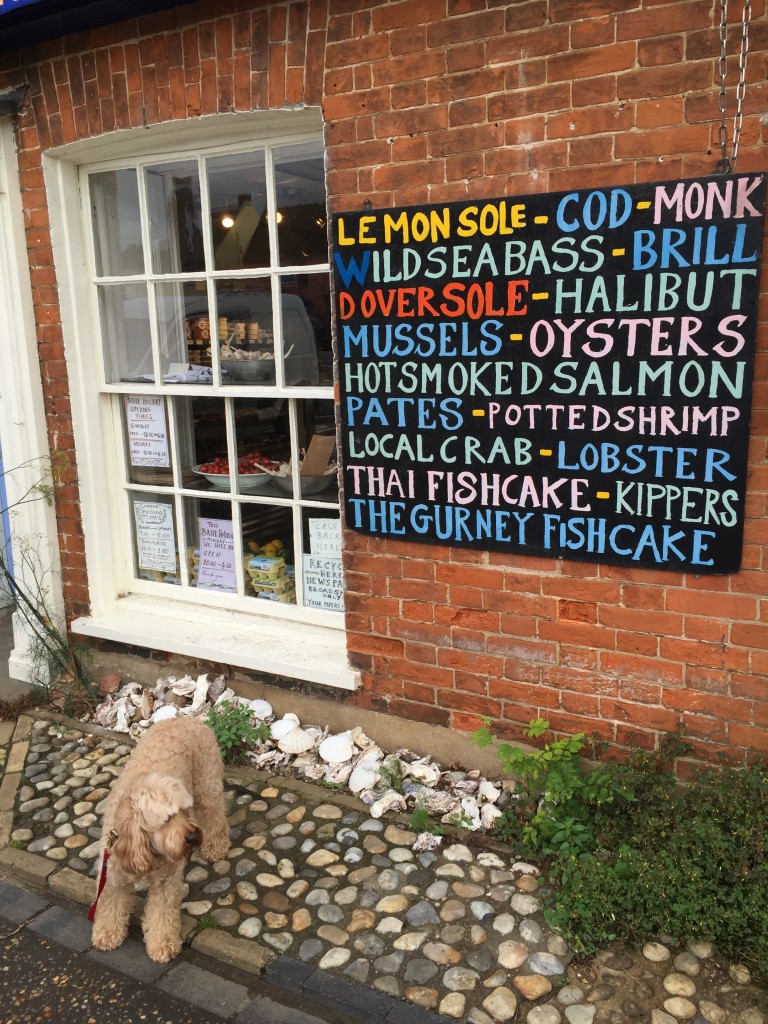 LEMON SOLE - COD - MONK
WILD SEABASS - BRILL
DOVER SOLE - HALIBUT
MUSSELS - OYSTERS
HOT SMOKED SALMON
PATES - POTTED SHRIMP
LOCAL CRAB - LOBSTER
THAI FISHCAKE - KIPPERS
THE GURNEY FISHCAKE
BANK HOLIDAY
OPENING
TIMES
SUNDAY
MONDAY
OPENING
TIMES
THIS
BANK HOLIDAY
MONDAY
WE WILL BE
OPEN
CASH
BACK
HERE
RECYCLE
HERE
NEWSPAPER
BROADSHEET
ONLY